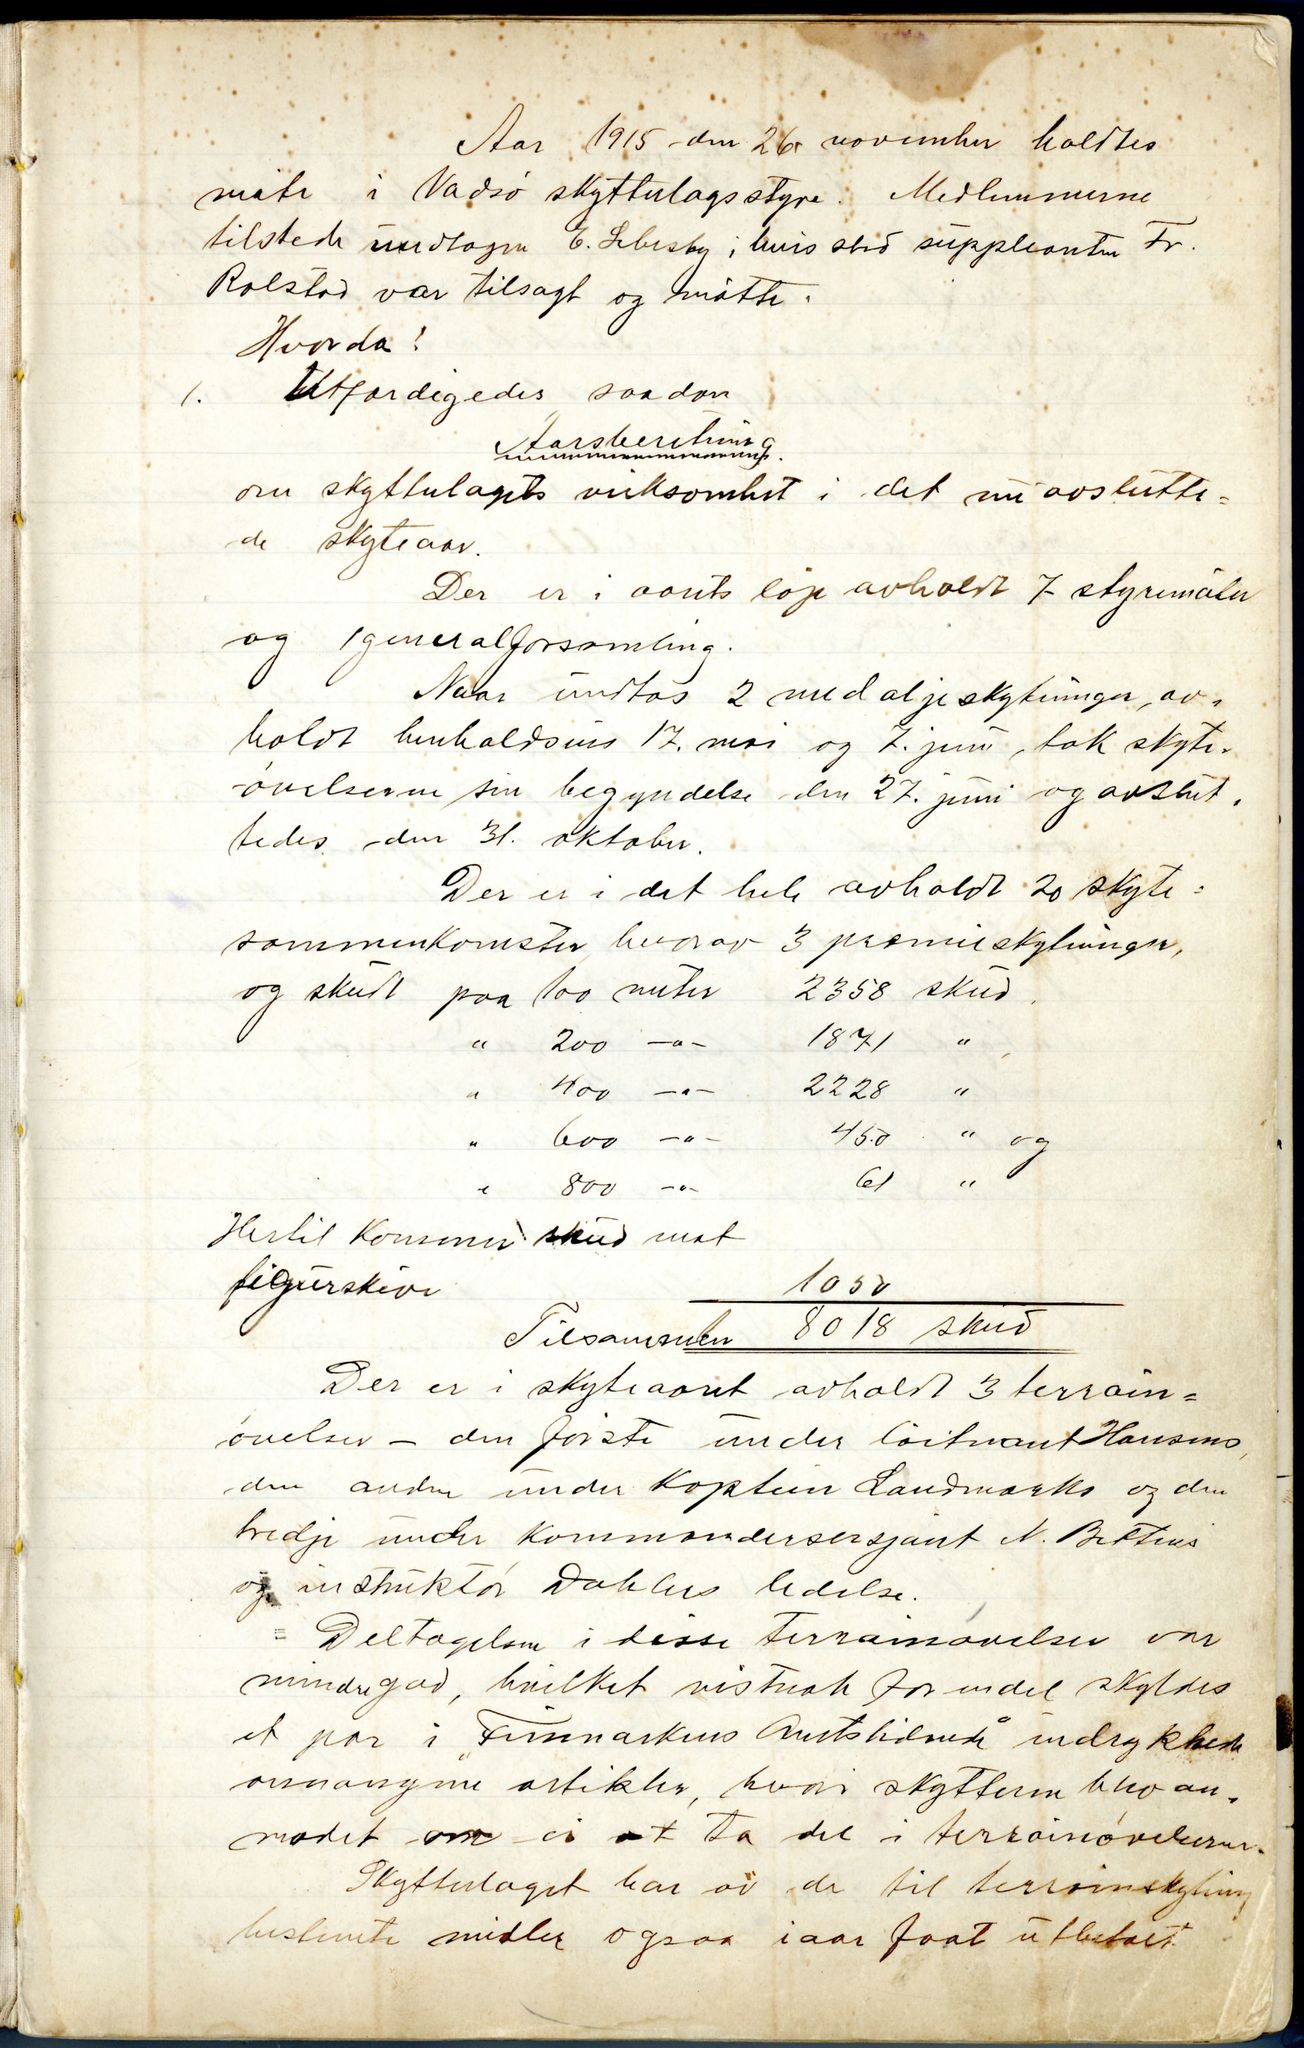 Aar 1915 den 26 november holdtes
møte i Vadsö skytterlagsstyre. Medlemmerne
tilstede undtagen E. Lebesby, i hvis sted suppleanten Fr.
Rolstad var tilsagt og møtte.
Hvorda!
1. Utfærdigedes saadan
Aarsberetning
om skytterlagets virksomhet i det nu avslutte=
de skyteaar.
Der er i aarets löp avholdt 7 styremöter
og 1 generalforsamling.
Naar undtas 2 medaljeskytninger, av-
holdt henholdsvis 17. mai og 7. juni, tok skyte-
övelserne sin begyndelse den 27. juni og avslut-
tedes den 31. oktober.
Der er i det hele avholdt 20 skyte=
sammenkomster, hvorav 3 præmieskytninger,
og skudt paa 100 meter 2358 skud,
" 200 -"- 1871 "
" 400 -"- 2228 "
" 600 -"- 450 " og
" 800 -"- 61 "
Hertil kommer skud mot
figurskive 1050
Tilsammen 8018 skud
Der er i skyteaaret avholdt 3 terræin=
övelser - den förste under löitnant Hansens,
den anden under kaptein Landmarks og den
tredje under kommandersersjant N.
og instruktör Dahlers ledelse.
= Deltagelsen i disse terrainövelser var
mindregod, hvilket vistnok for endel skyldes
et par i "Finmarkens Amtstidende" indrykkede
annonyme artikler, hvori skytterne blev an-
modet om ei at ta del i terrainövelserne.
Skytterlaget har av de til terrainskytning
bestemte midler ogsaa iaar faat utbetalt